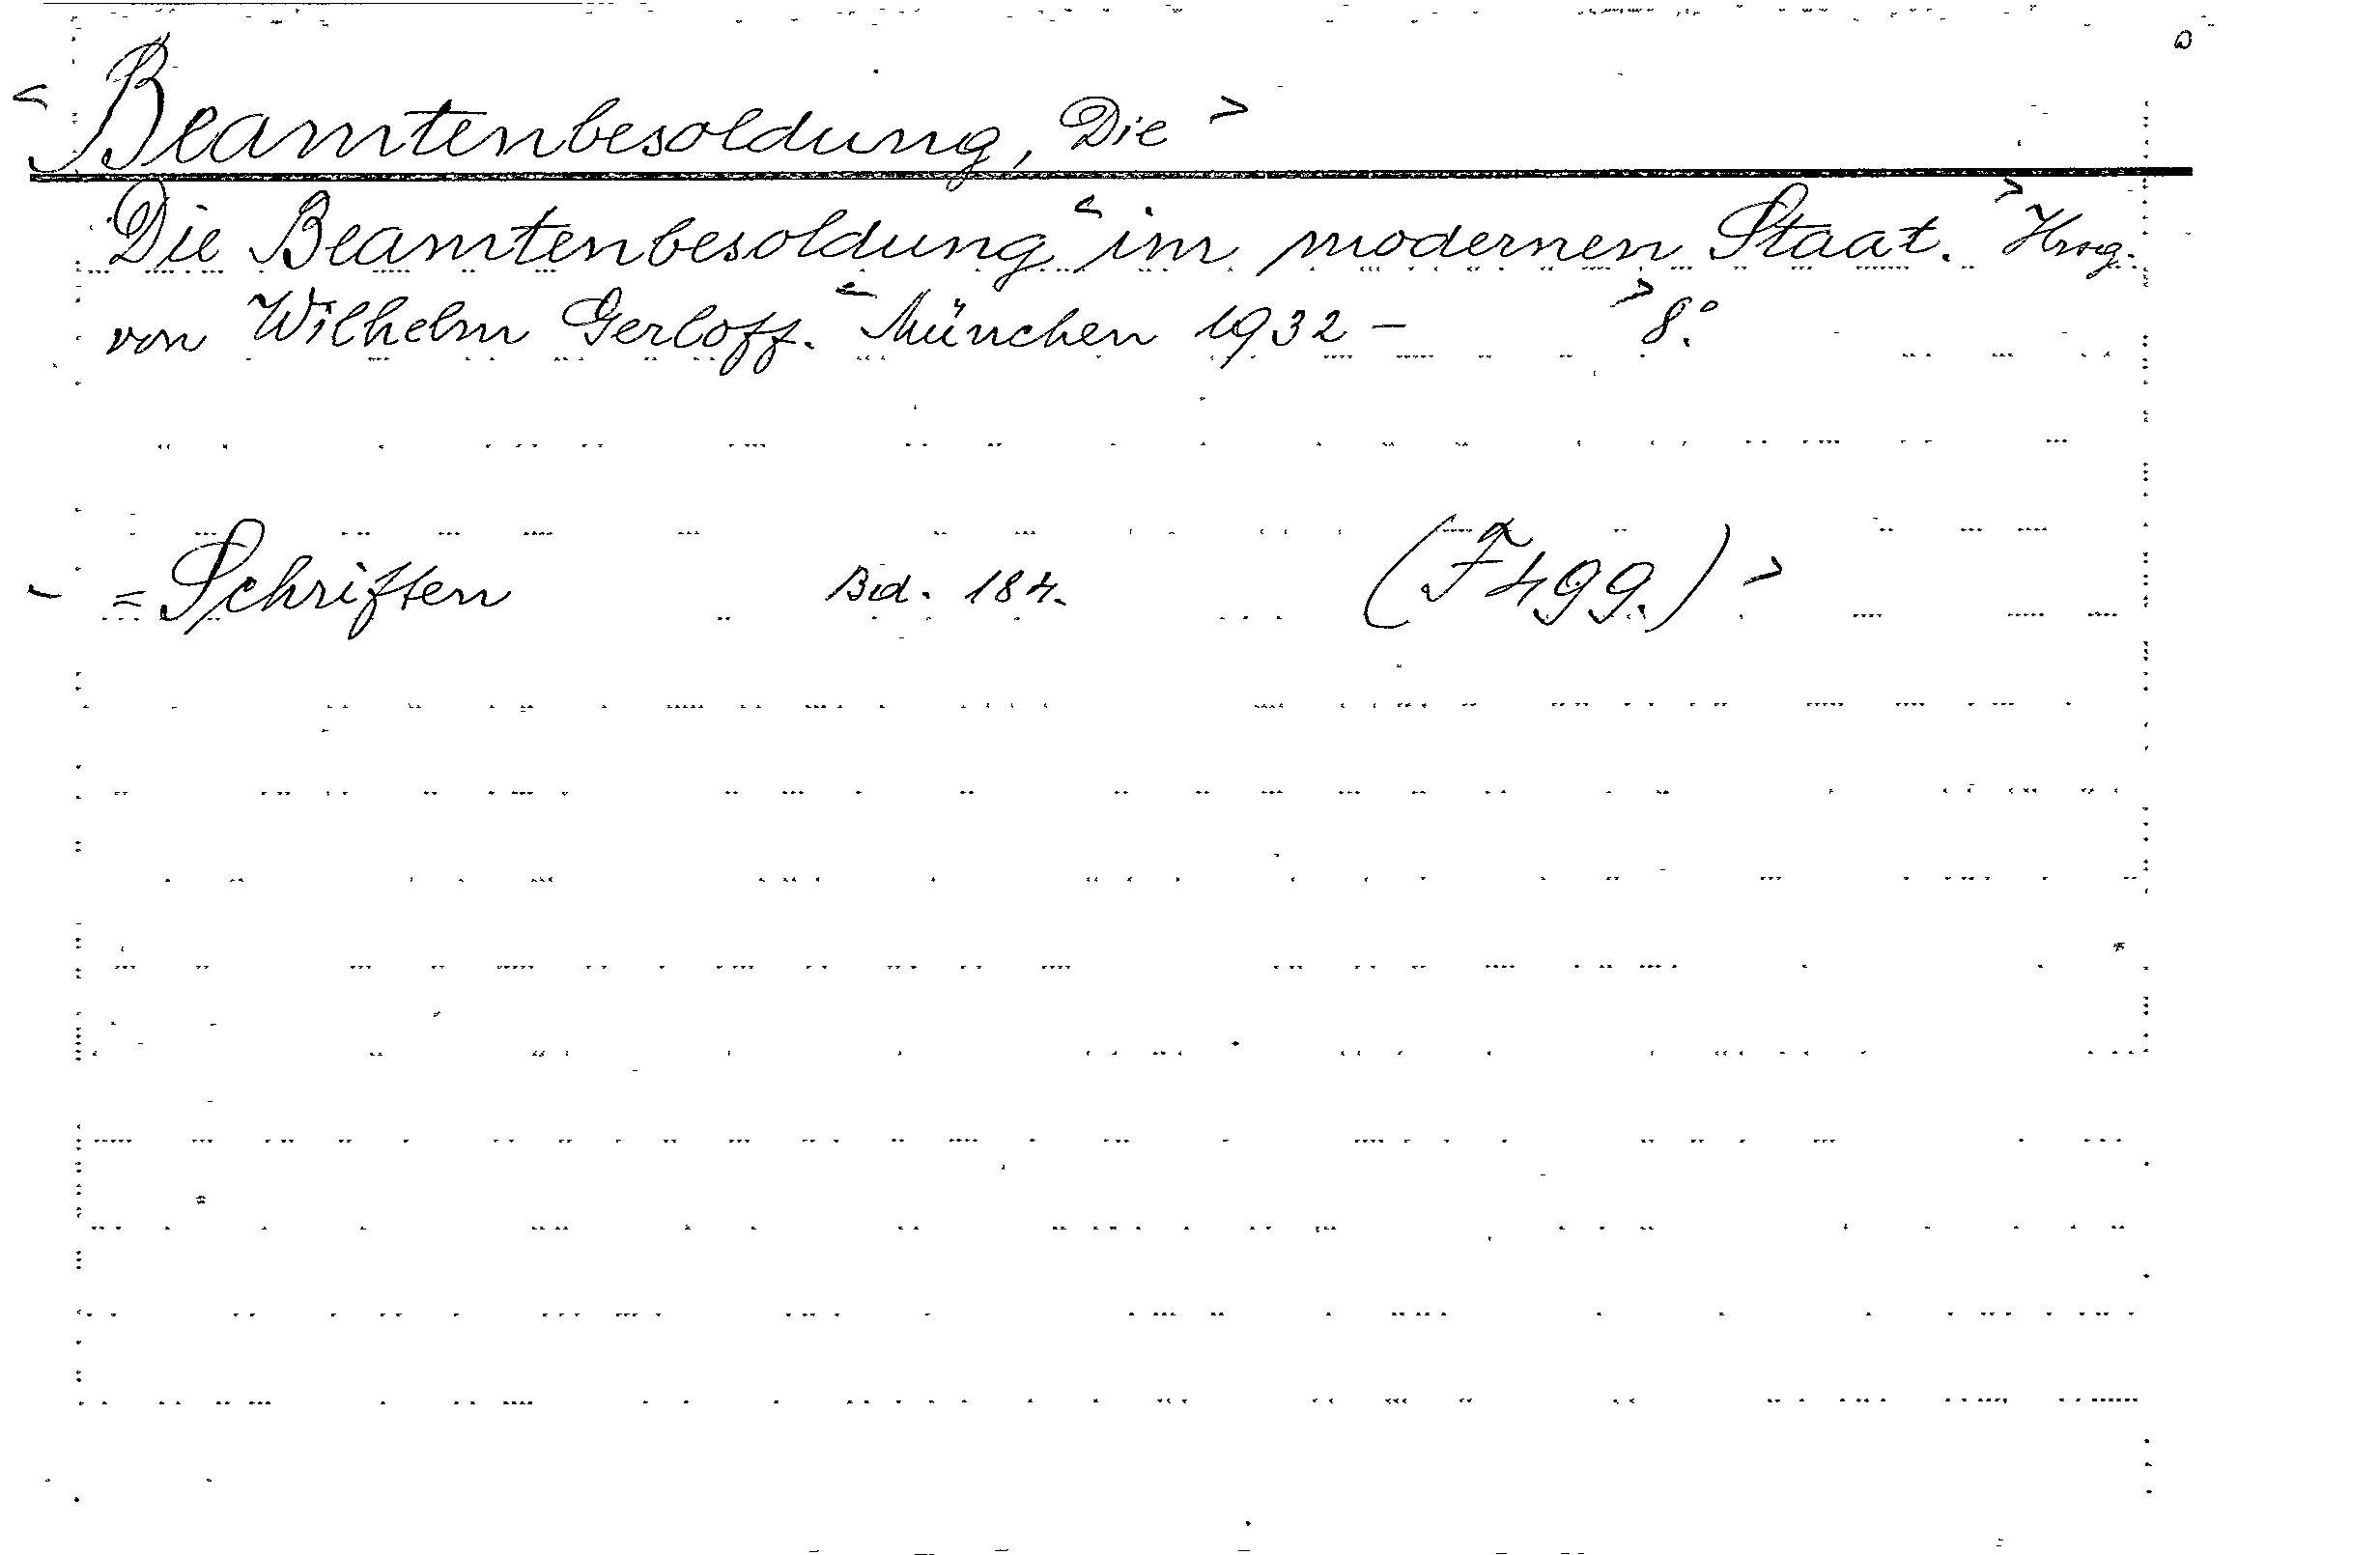 < Beamtenbesoldung, Die >
Die Beamtenbesoldung < im modernen Staat. > Hrsg.
von Wilhelm Gerloff. < München 1932 – > 8°.
- = Schriften Bd. 184. (F 499.) >